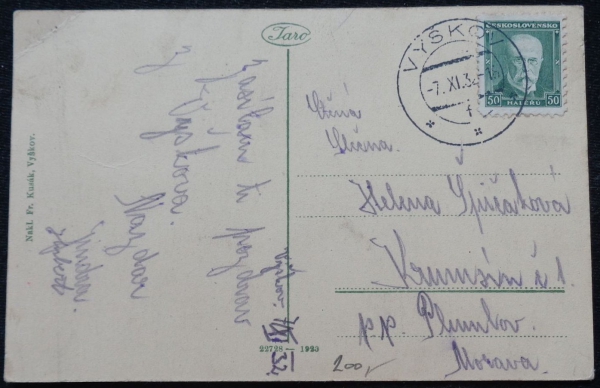 Taro
VYŠKOV
-7. XI. 32
f
ČESKOSLOVENSKO
50 HALÉŘŮ 50
Zasílám ti pozdrav
z Vyškova.
Nazdar
Jindra
Vyškov 7/XI 32.
Ctěná
Slečna
Helena Spičáková
Krumsín č 1.
p.p. Plumlov.
Morava.
Nakl. Fr. Kusák, Vyškov.
22728 — 1925
200,-